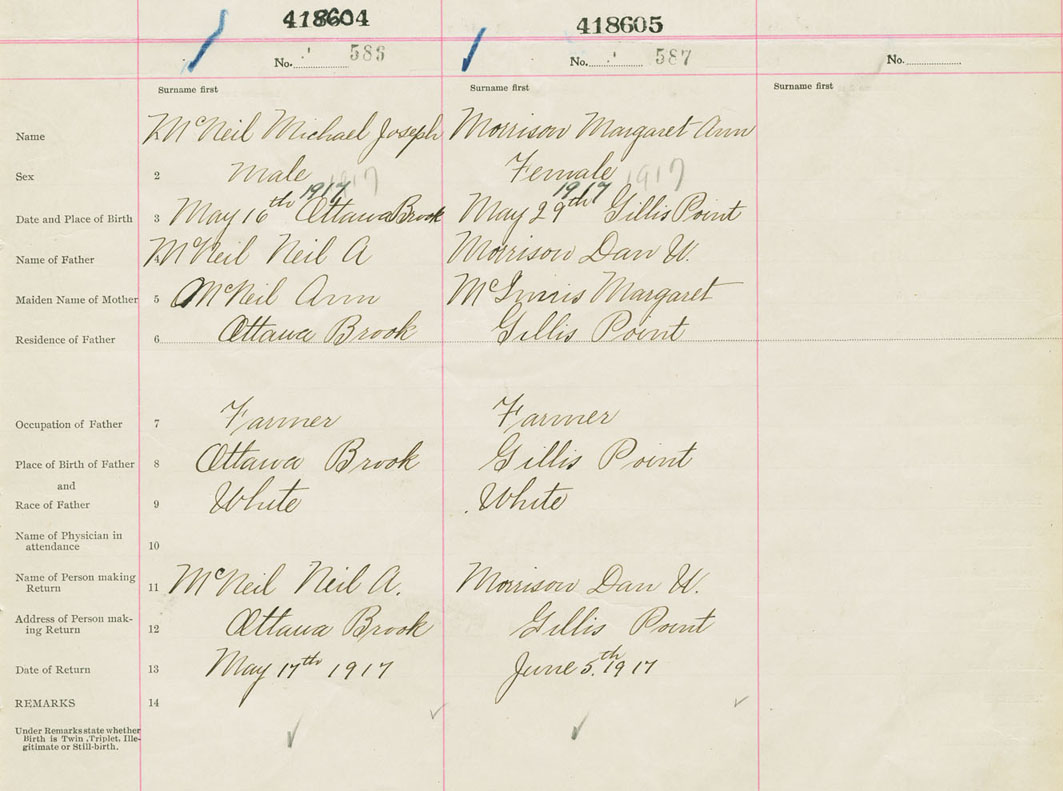 418604 418605
No. 586 No. 587 No.
Surname first Surname first Surname first
Name 1 McNeil Michael Joseph Morrison Margaret Ann
Sex 2 Male 1917 Female 1917
1917 1917
Date and Place of Birth 3 May 16th Ottawa Brook May 29th Gillis Point
Name of Father 4 McNeil Neil A Morrison Dan W.
Maiden Name of Mother 5 McNeil Ann McInnis Margaret
Residence of Father 6 Ottawa Brook Gillis Point
Occupation of Father 7 Farmer Farmer
Place of Birth of Father 8 Ottawa Brook Gillis Point
and
Race of Father 9 White White
Name of Physician in
attendance 10
Name of Person making
Return 11 McNeil Neil A. Morrison Dan W.
Address of Person mak-
ing Return 12 Ottawa Brook Gillis Point
Date of Return 13 May 17th 1917 June 5th. 1917
REMARKS 14
Under Remarks state whether
Birth is Twin, Triplet, Ille-
gitimate or Still-birth.